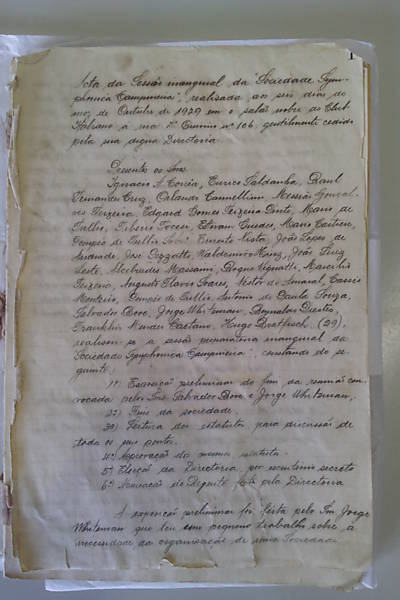 1
Acta da Sessão inaugural da "Sociedade Sym-
phonica Campineira", realizada aos seis dias do
mez de Outubro de 1929 em o salão nobre do Club
a rua nº 106, gentilmente cedido
pela sua digna Directoria
Presentes os Snrs.
Ignacio A. Corrêa, Eurico Saldanha, Raul
Fernandes Cruz, Orlando Messias Gonçal-
ves Teixeira, Edgard Gomes Teixeira Pinto, Mario de
Tullio, Tiberio Estevam Guedes, Mario
Pompeo de Tullio, Ernesto João Lopes de
Andrade, José Waldemiro João Luiz
Leste, Alcebiades Massaini, Roque Marcilio
Teixeira, Augusto Flavio Soares, Nestor do Amaral, Cassio
Monteiro, de Tullio, Antonio de Paula Souza,
Salvador Bove, Jorge Whiteman, Reynaldo
Franklin Mendes Caetano, Hugo Bratfisch, (29),
realisou-se a sessão inaugural da
"Sociedade Symphonica Campineira", constando do se-
guinte:
1º) Exposição preliminar do fim da reunião con-
vocada pelos Snrs. Salvador Bove e Jorge Whiteman;
2º) Fins da sociedade
3º) Leitura dos estatutos, para discussão de
todos os seus pontos.
4º) Approvação do mesmo estatuto.
5º) Eleição da Directoria, por escrutinio secreto
6º) Nomeação do Regente feita pela Directoria
A exposição preliminar foi feita pelo Snr. Jorge
Whiteman que leu um pequeno trabalho sobre a
necessidade da organisação de uma Sociedade